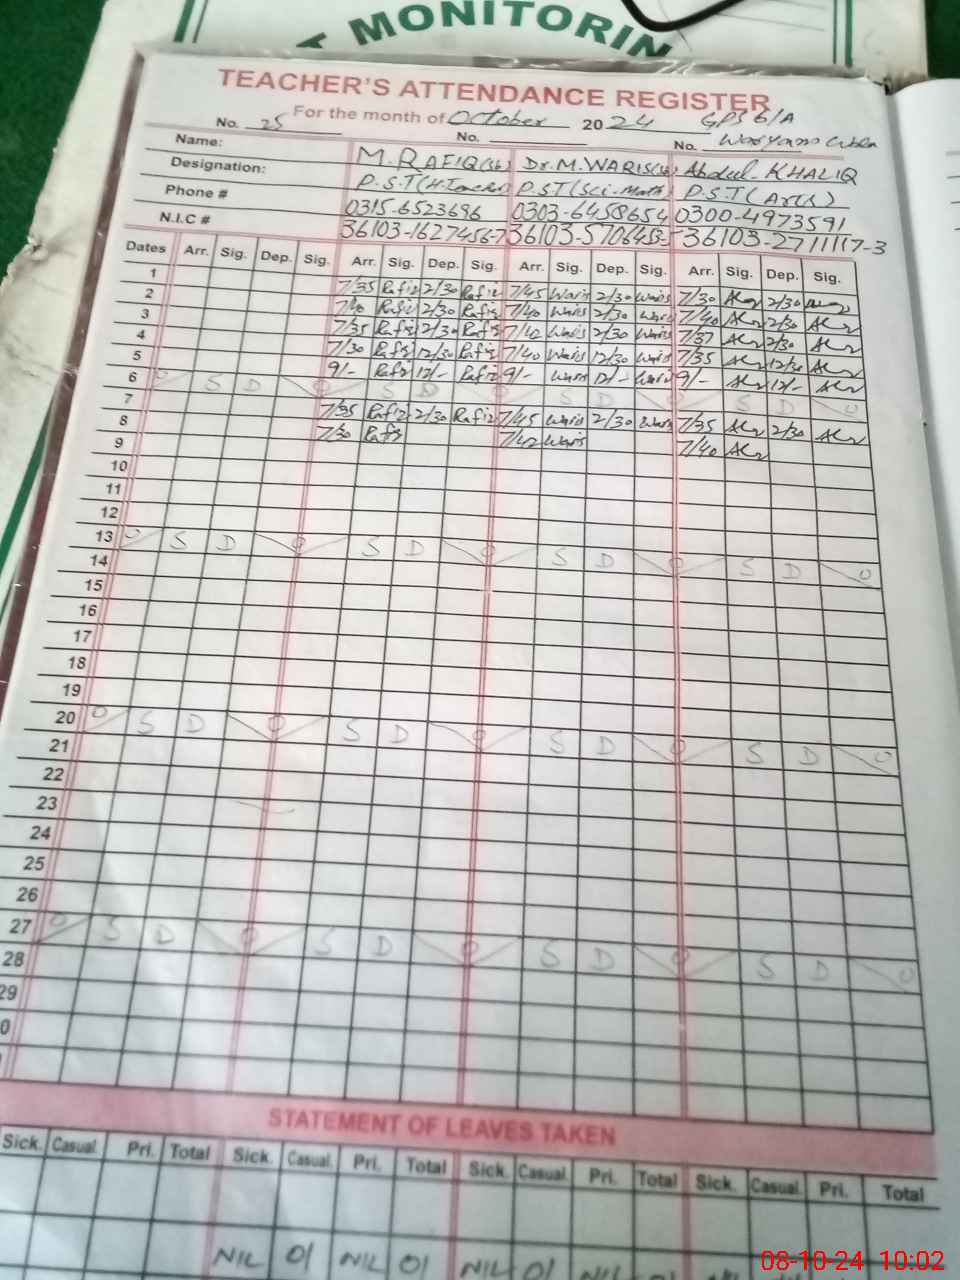 T MONITORIN
TEACHER'S ATTENDANCE REGISTER
For the month of October 2024 GPS 6/A
No. 25 No. No.
Name: M. RAFIQ(Sb) Dr. M. WARIS(Sb) Abdul KHALIQ
Designation: P.S.T(H.Teacher) P.S.T(Sci-Math) P.S.T(Arts)
Phone # 0315-6523696 0303-6458654 0300-4973591
N.I.C # 36103-1627456-7 36103-5706453- 36103-2711117-3
Dates Arr. Sig. Dep. Sig. Arr. Sig. Dep. Sig. Arr. Sig. Dep. Sig. Arr. Sig. Dep. Sig.
1 7/35 Rafiq 2/30 Rafiq 7/45 Waris 2/30 Waris 7/30 2/30
2 7/40 Rafiq 2/30 Rafiq 7/40 Waris 2/30 Waris 7/40 2/30
3 7/35 Rafiq 2/30 Rafiq 7/42 Waris 2/30 Waris 7/37 2/30
4 7/30 Rafiq 12/30 Rafiq 7/40 Waris 12/30 Waris 7/35 12/30
5 9/- Rafiq 12/- Rafiq 9/- Waris 12/- Waris 9/- 12/-
6 O S D O S D O S D O S D O
7 7/35 Rafiq 2/30 Rafiq 7/45 Waris 2/30 Waris 7/35 2/30
8 7/30 Rafiq 7/42 Waris 7/40
9
10
11
12
13 O S D O S D O S D O S D O
14
15
16
17
18
19
20 O S D O S D O S D O S D O
21
22
23
24
25
26
27 O S D O S D O S D O S D O
28
29
0
STATEMENT OF LEAVES TAKEN
Sick. Casual. Pri. Total Sick. Casual. Pri. Total Sick. Casual. Pri. Total Sick. Casual. Pri. Total
NIL 01 NIL 01 NIL 01 NIL 01
08-10-24 10:02